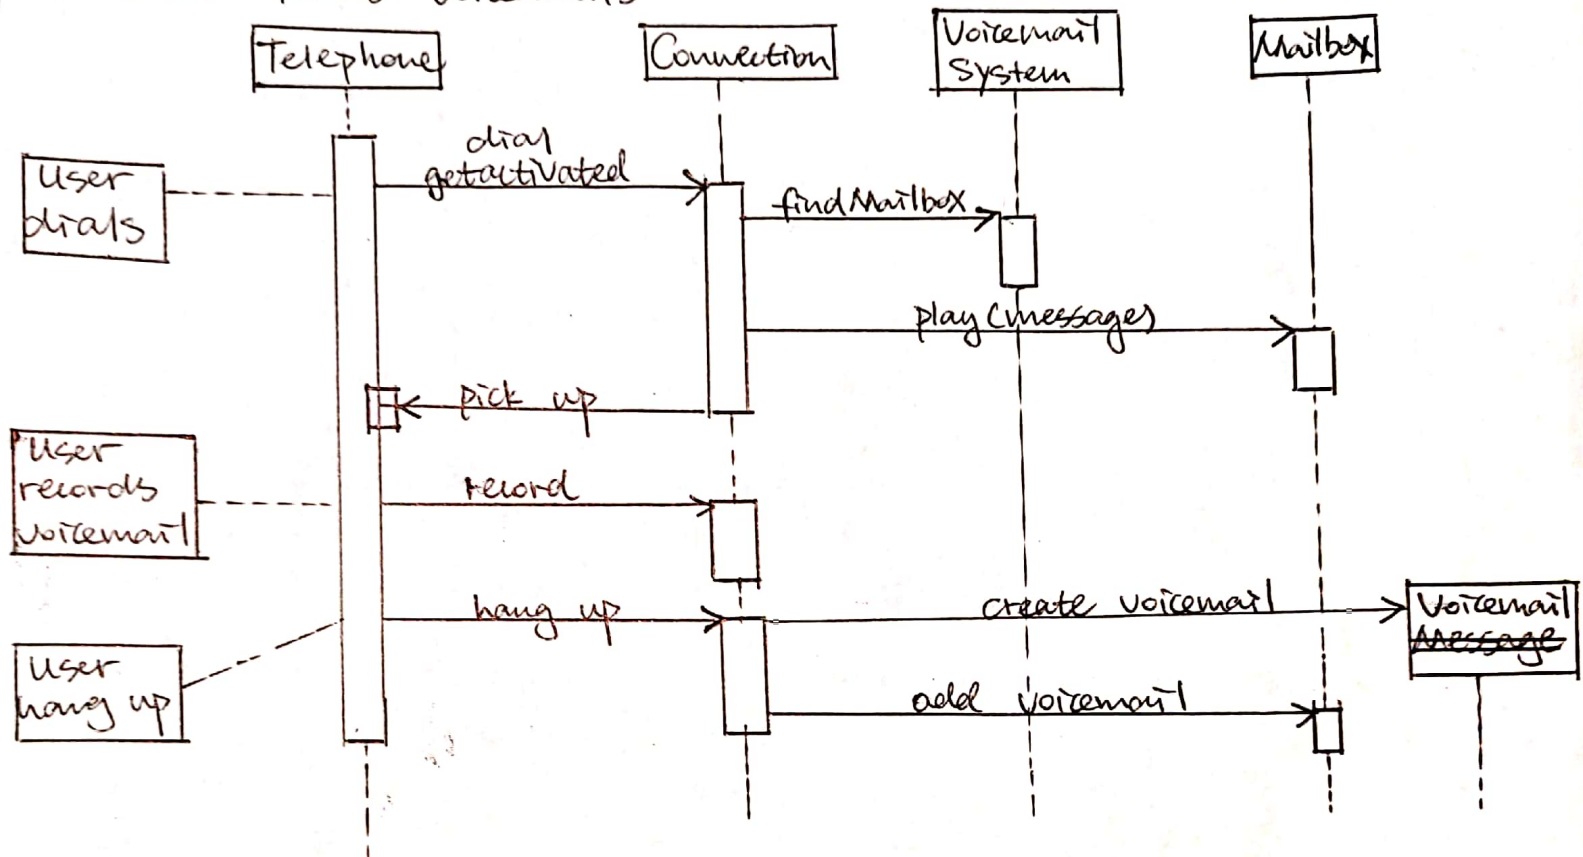 Telephone
Connection
Voicemail
System
Mailbox
dial
getactivated
User
dials
findMailbox
play(message)
pick up
User
records
voicemail
record
hang up
create voicemail
Voicemail
Message
User
hang up
add voicemail